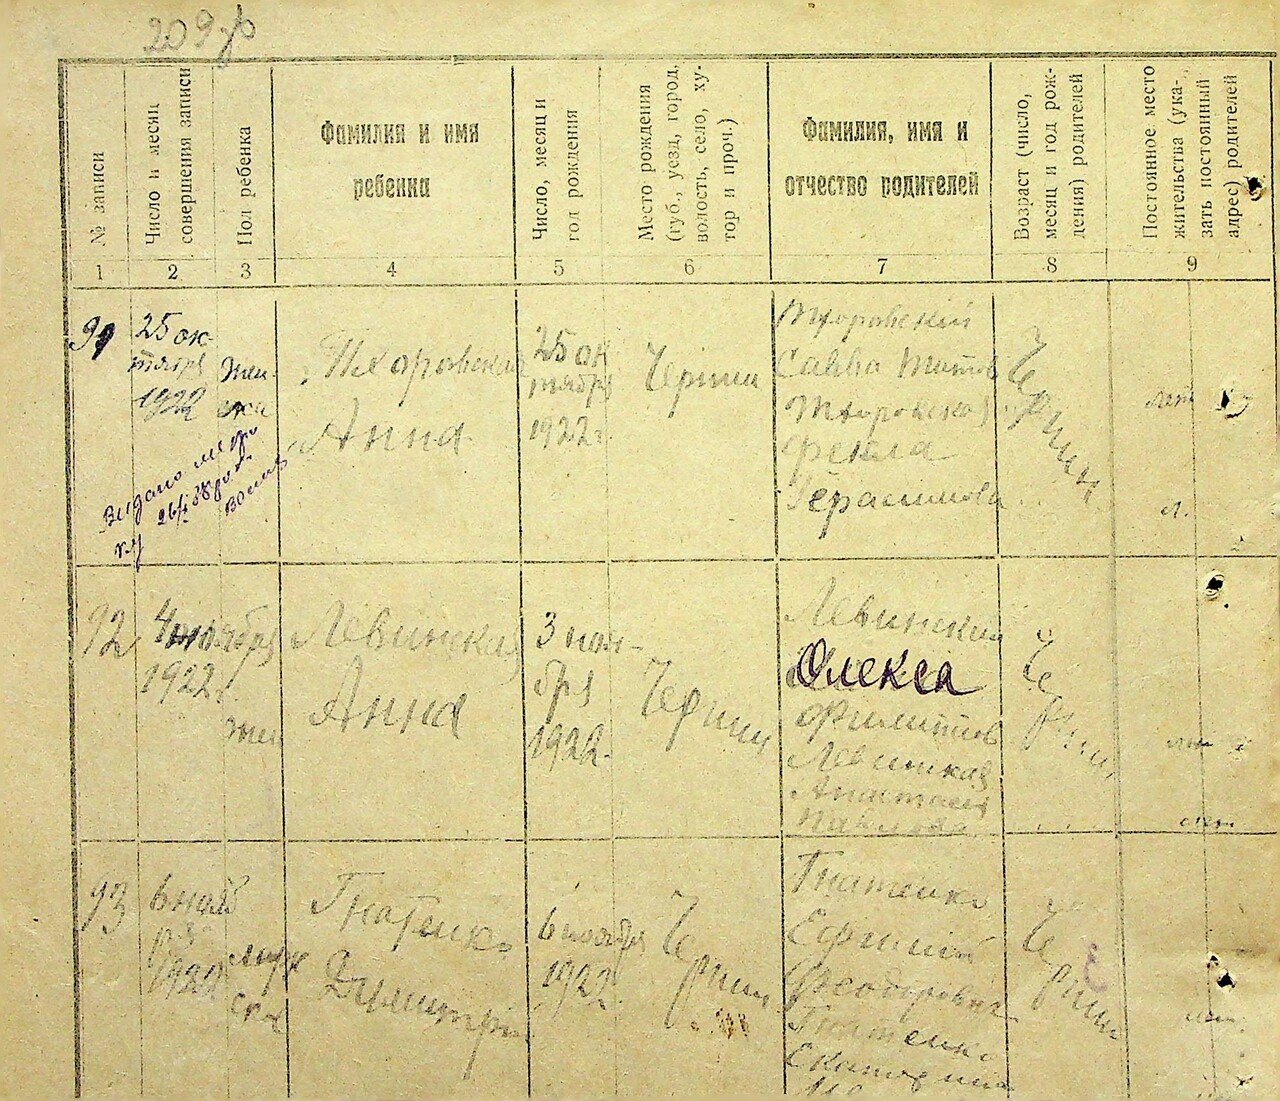 209 
№ записи
Число и месяц
совершения записи
Пол ребенка
Фамилия и имя
ребенка
Число, месяц и
год рождения
Место рождения
(губ., уезд, город,
волость, село, ху-
тор и проч.)
Фамилия, имя и
отчество родителей
Возраст (число,
месяц и год рож-
дения) родителей
Постоянное место
жительства (ука-
зать постоянный
адрес) родителей
1 2 3 4 5 6 7 8 9
91
25 ок-
тября
1922
Жен
ска
Тхоровская
Анна
25 ок
тября
1922 г.
Черпин
Тхоровский
Савва Титов
Тхоровская
Фекла
Герасимова
Черпин
лет
л.
Выдано метри
ку
92
4 ноября
1922 г.
Жен
Левинская
Анна
3 ноя-
бря
1922 г.
Черпин
Левинский
Олекса
Филипов
Левинская
Анастасия
Павлова
Черпин
лет
лет
93
6 нояб
ря
1922
мужс
ска
Гнатенко
Димитри
6 ноября
1922
Черпин
Гнатенко
Ефимий
Феодорович
Гнатенко
Екатерина
Черпин
лет